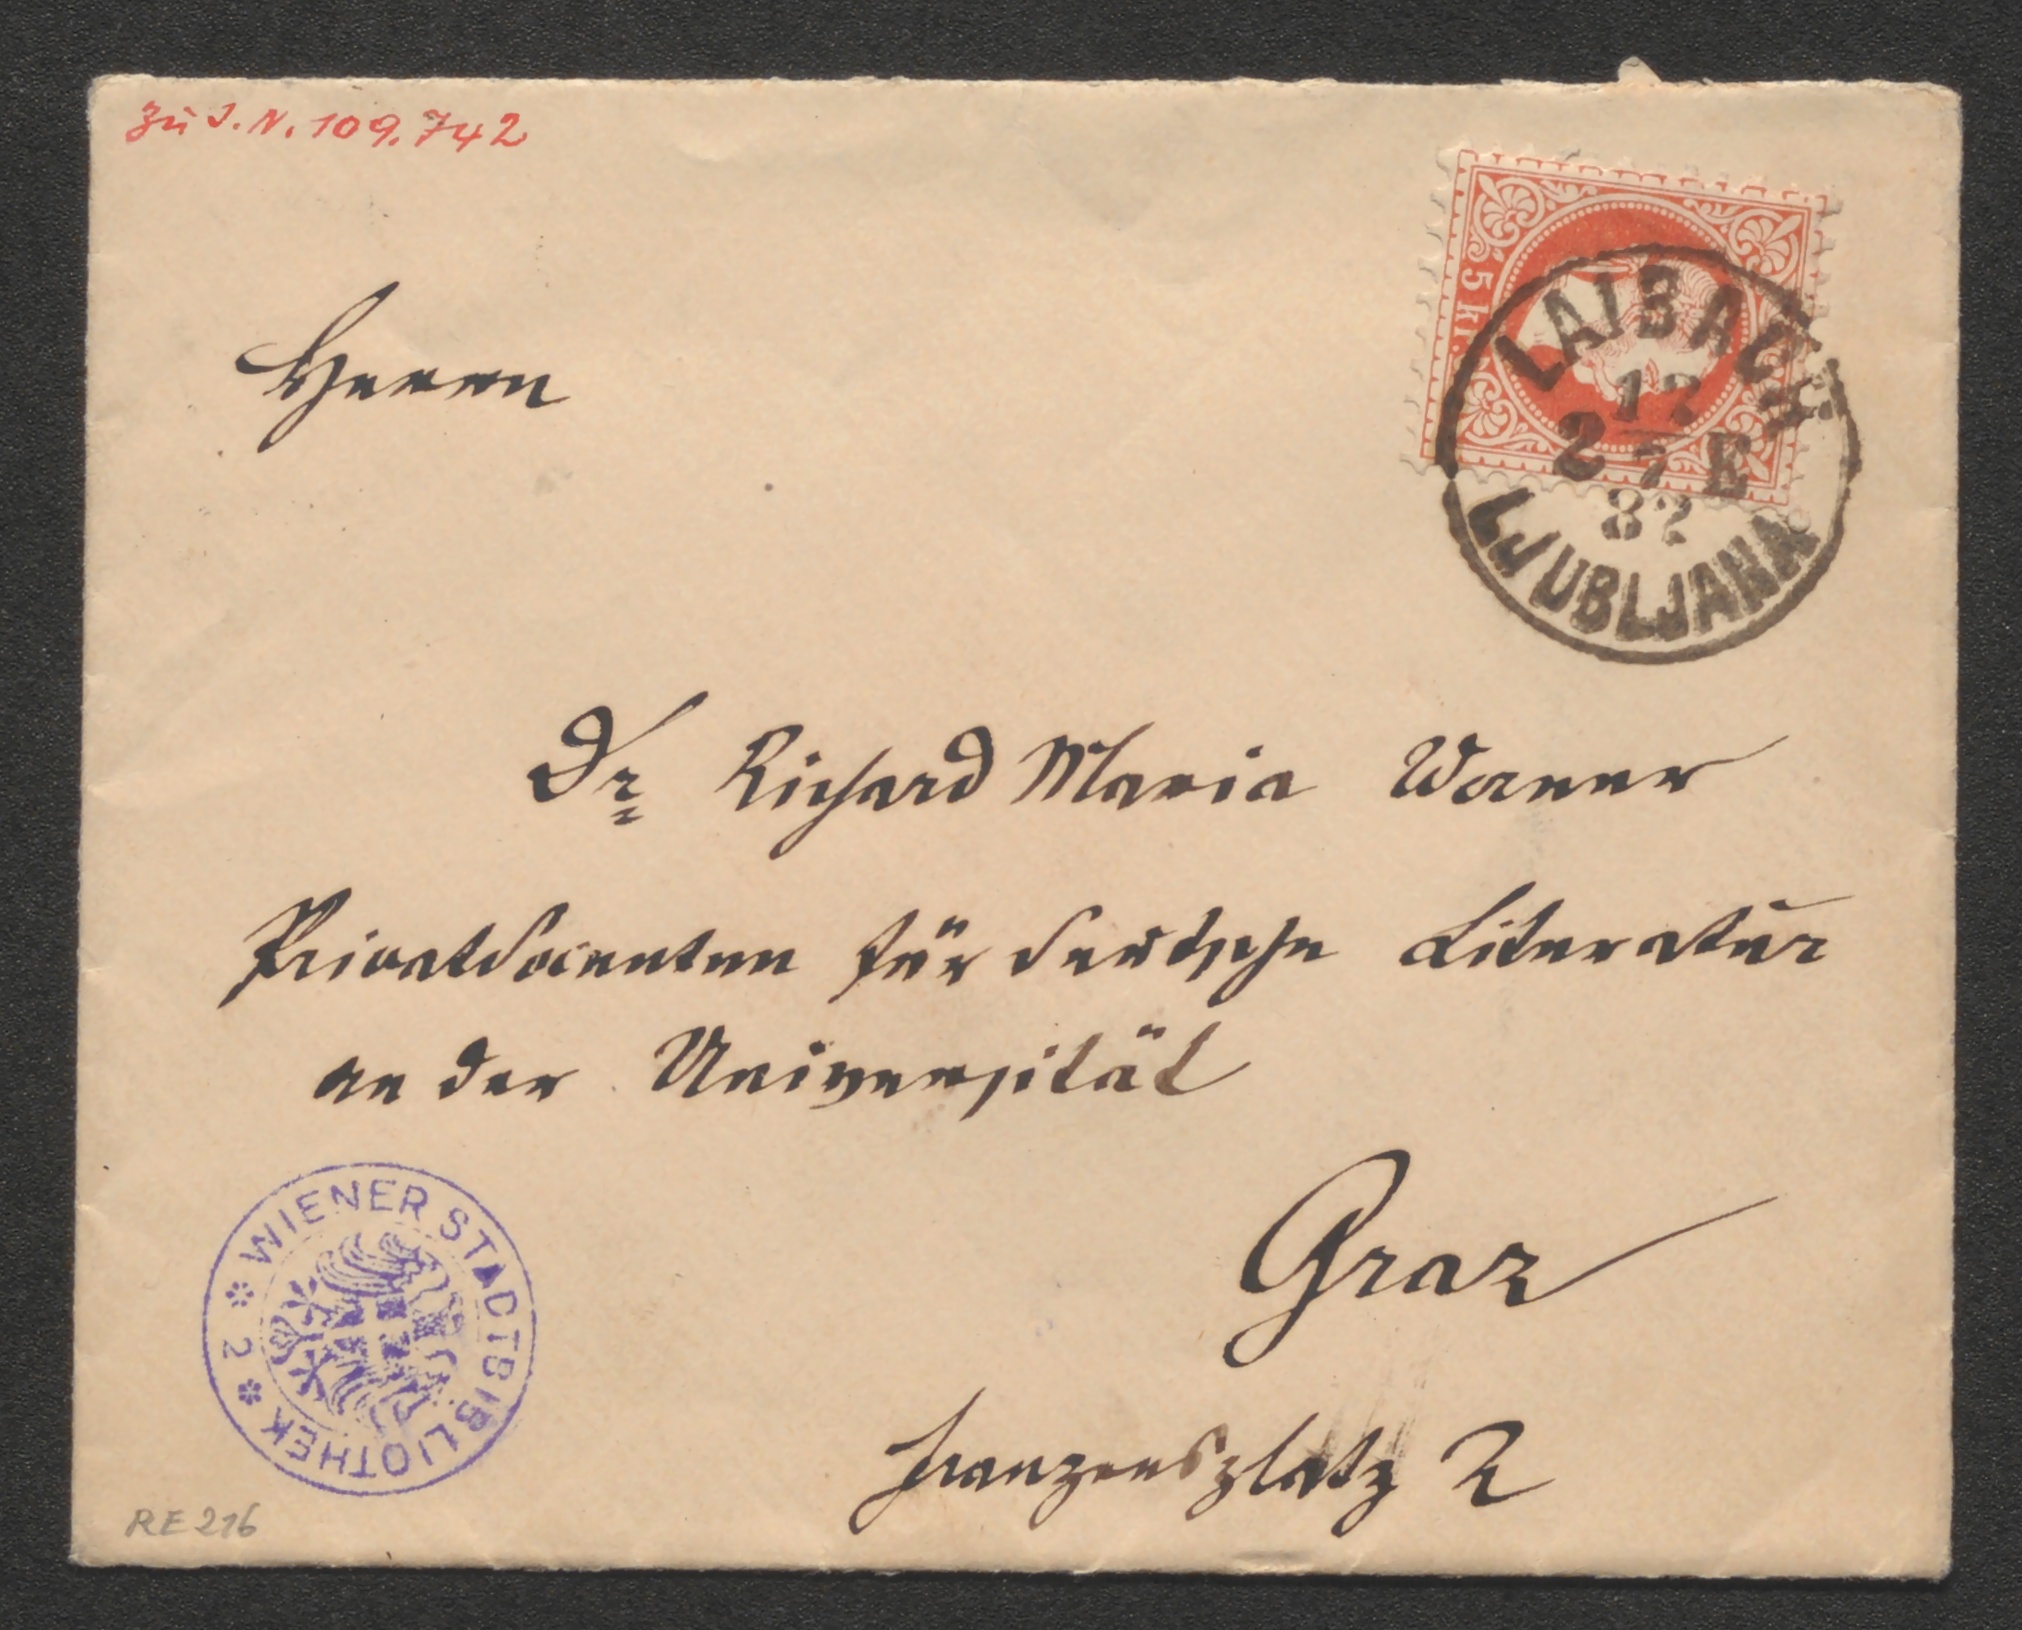 Zu I.N. 109.742
5 kr.
LAIBACH
17
2 7 E
82
LJUBLJANA
Herrn
Dr Richard Maria Werner
Privatdocenten für deutsche Literatur
an der Universität
Graz
Franzensplatz 2
* WIENER STADTBIBLIOTHEK * 2
RE 216